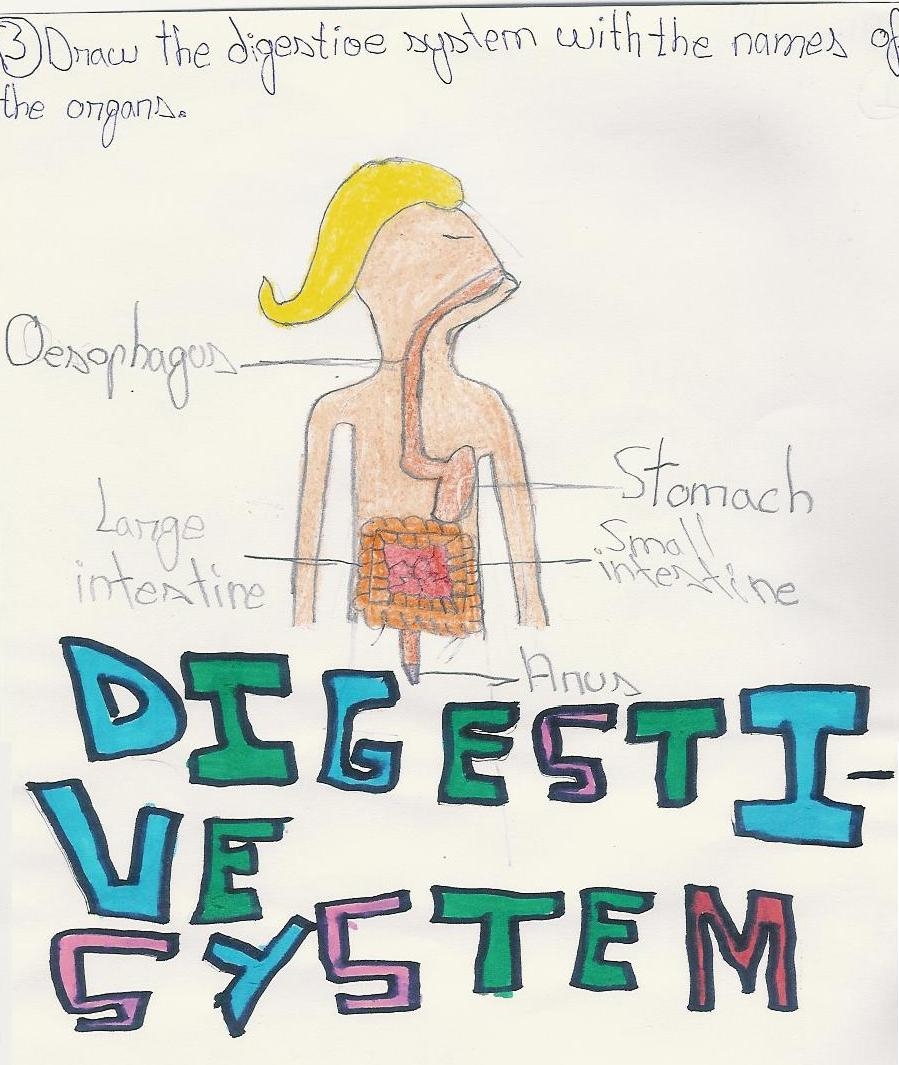 3 Draw the digestive system with the names of
the organs.
Oesophagus
Stomach
Large
intestine
Small
intestine
Anus
DIGESTI-
VE
SYSTEM